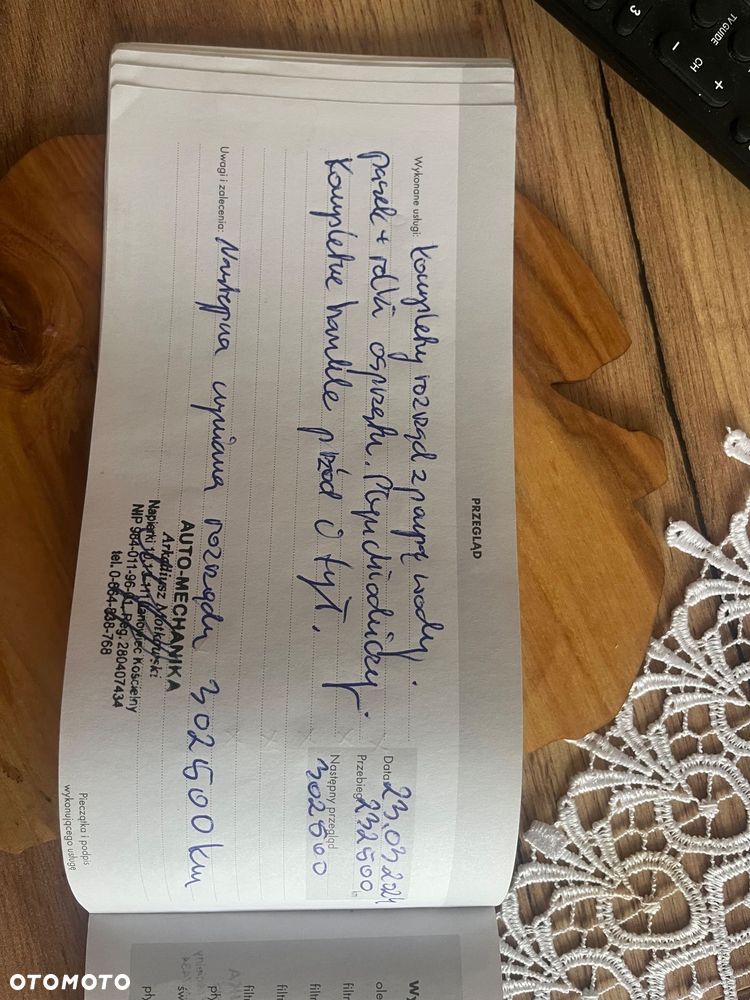 PRZEGLĄD
Wykonane usługi: Kompletny rozrząd z pompą wody.
Data 23.03.2024
pasek + rolki osprzętu. Płyn chłodniczy.
Przebieg 232500 km
Kompletne hamulce przód i tył.
Następny przegląd
302500
Uwagi i zalecenia: Następna wymiana rozrządu 302500 km
AUTO-MECHANIKA
Arkadiusz
Napierki Janowiec Kościelny
NIP 984-011-96- Reg. 280407434
tel. 0-664-838-768
Pieczątka i podpis
wykonującego usługę
TV GUIDE
3
CH
+
-
OTOMOTO